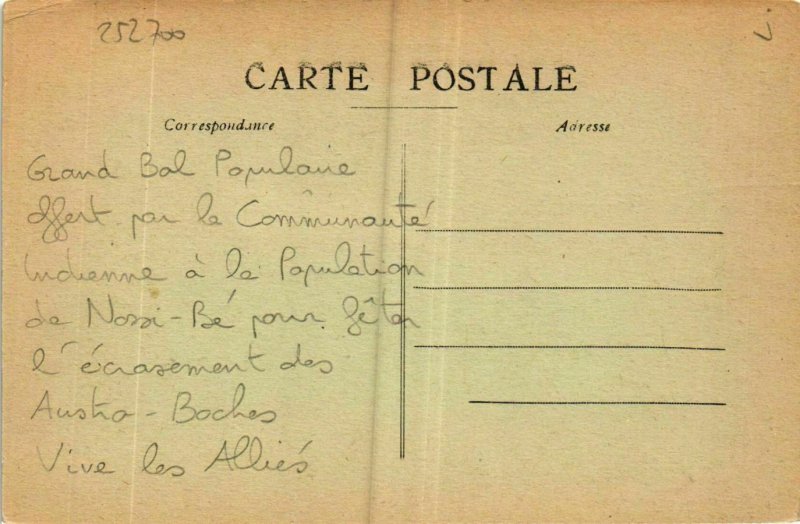 252700
J
CARTE POSTALE
Correspondance
Adresse
Grand Bal Populaire
offert par la Communauté
Indienne à la Population
de Nossi-Bé pour fêter
l'écrasement des
Austro-Boches
Vive les Alliés